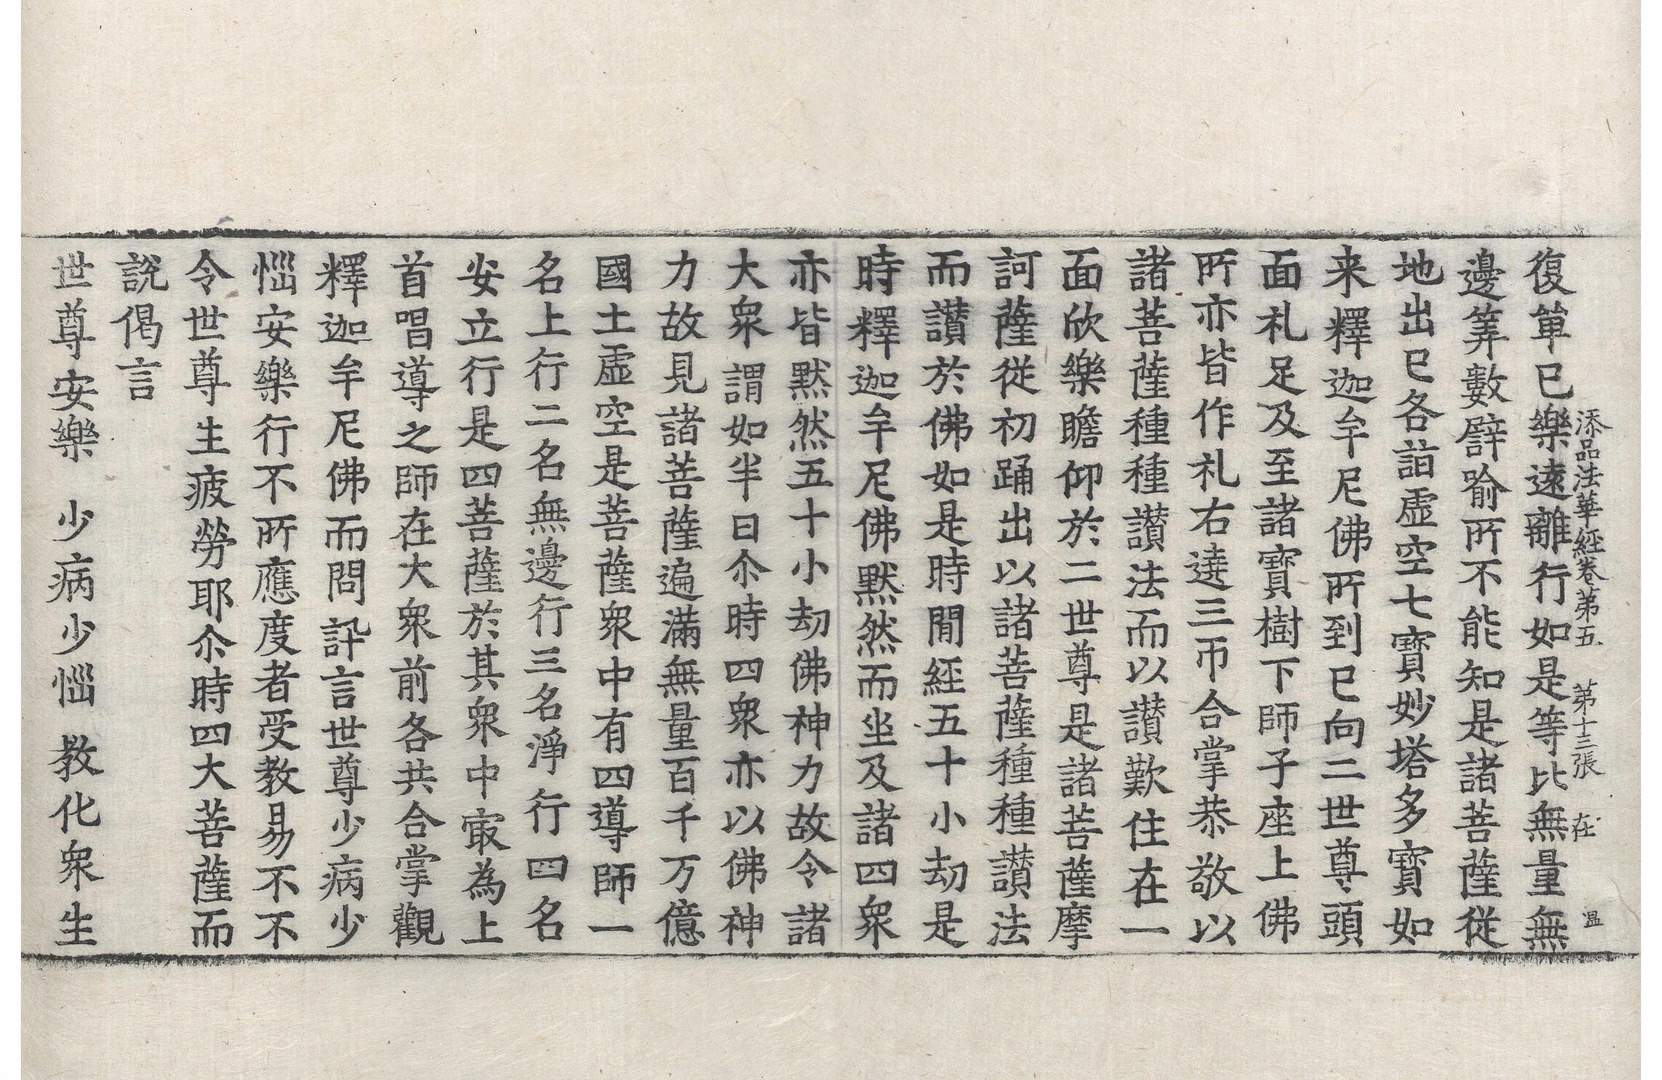 添品法華經卷第五 第十三張 在 𥁕
復單已樂遠離行如是等比無量無
邊筭數譬喻所不能知是諸菩薩從
地出已各詣虛空七寶妙塔多寶如
来釋迦牟尼佛所到已向二世尊頭
面礼足及至諸寶樹下師子座上佛
所亦皆作礼右遶三帀合掌恭敬以
諸菩薩種種讃法而以讃歎住在一
面欣樂瞻仰於二世尊是諸菩薩摩
訶薩從初踊出以諸菩薩種種讃法
而讃於佛如是時閒經五十小劫是
時釋迦牟尼佛默然而坐及諸四衆
亦皆默然五十小劫佛神力故令諸
大衆謂如半日尒時四衆亦以佛神
力故見諸菩薩遍滿無量百千万億
國土虛空是菩薩衆中有四導師一
名上行二名無邊行三名淨行四名
安立行是四菩薩於其衆中㝡為上
首唱導之師在大衆前各共合掌觀
釋迦牟尼佛而問訊言世尊少病少
惱安樂行不所應度者受教易不不
令世尊生疲勞耶尒時四大菩薩而
說偈言
世尊安樂 少病少惱 教化衆生